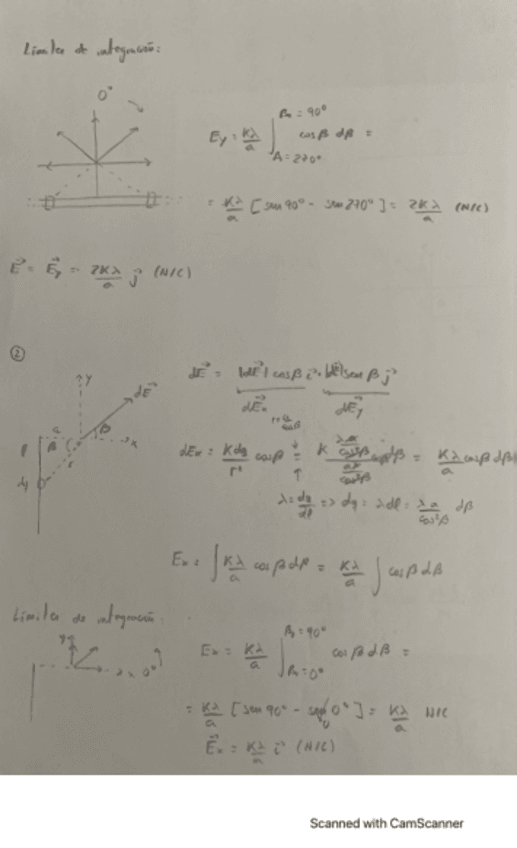 Límites de integración:
0°
Ey = Kλ/a ∫ β₂ = 90° β₁ = 270° cos β dβ =
= Kλ/a [sen 90° - sen 270°] = 2Kλ/a (N/C)
E⃗ = E⃗y = 2Kλ/a j⃗ (N/C)
②
dE⃗ = |dE⃗| cos β i⃗ + |dE⃗| sen β j⃗
dE⃗x dE⃗y
y
dE⃗
a
β
x
r
dq
dEx = Kdq/r² cos β = K (λa/cos²β)/(a²/cos²β) cos β dβ = Kλ/a cos β dβ
λ = dq/dl => dq = λdl = λa/cos²β dβ
Ex = ∫ Kλ/a cos β dβ = Kλ/a ∫ cos β dβ
Límites de integración:
y
x 0°
Ex = Kλ/a ∫ β₂ = 90° β₁ = 0° cos β dβ =
= Kλ/a [sen 90° - sen 0°] = Kλ/a N/C
E⃗x = Kλ/a i⃗ (N/C)
Scanned with CamScanner